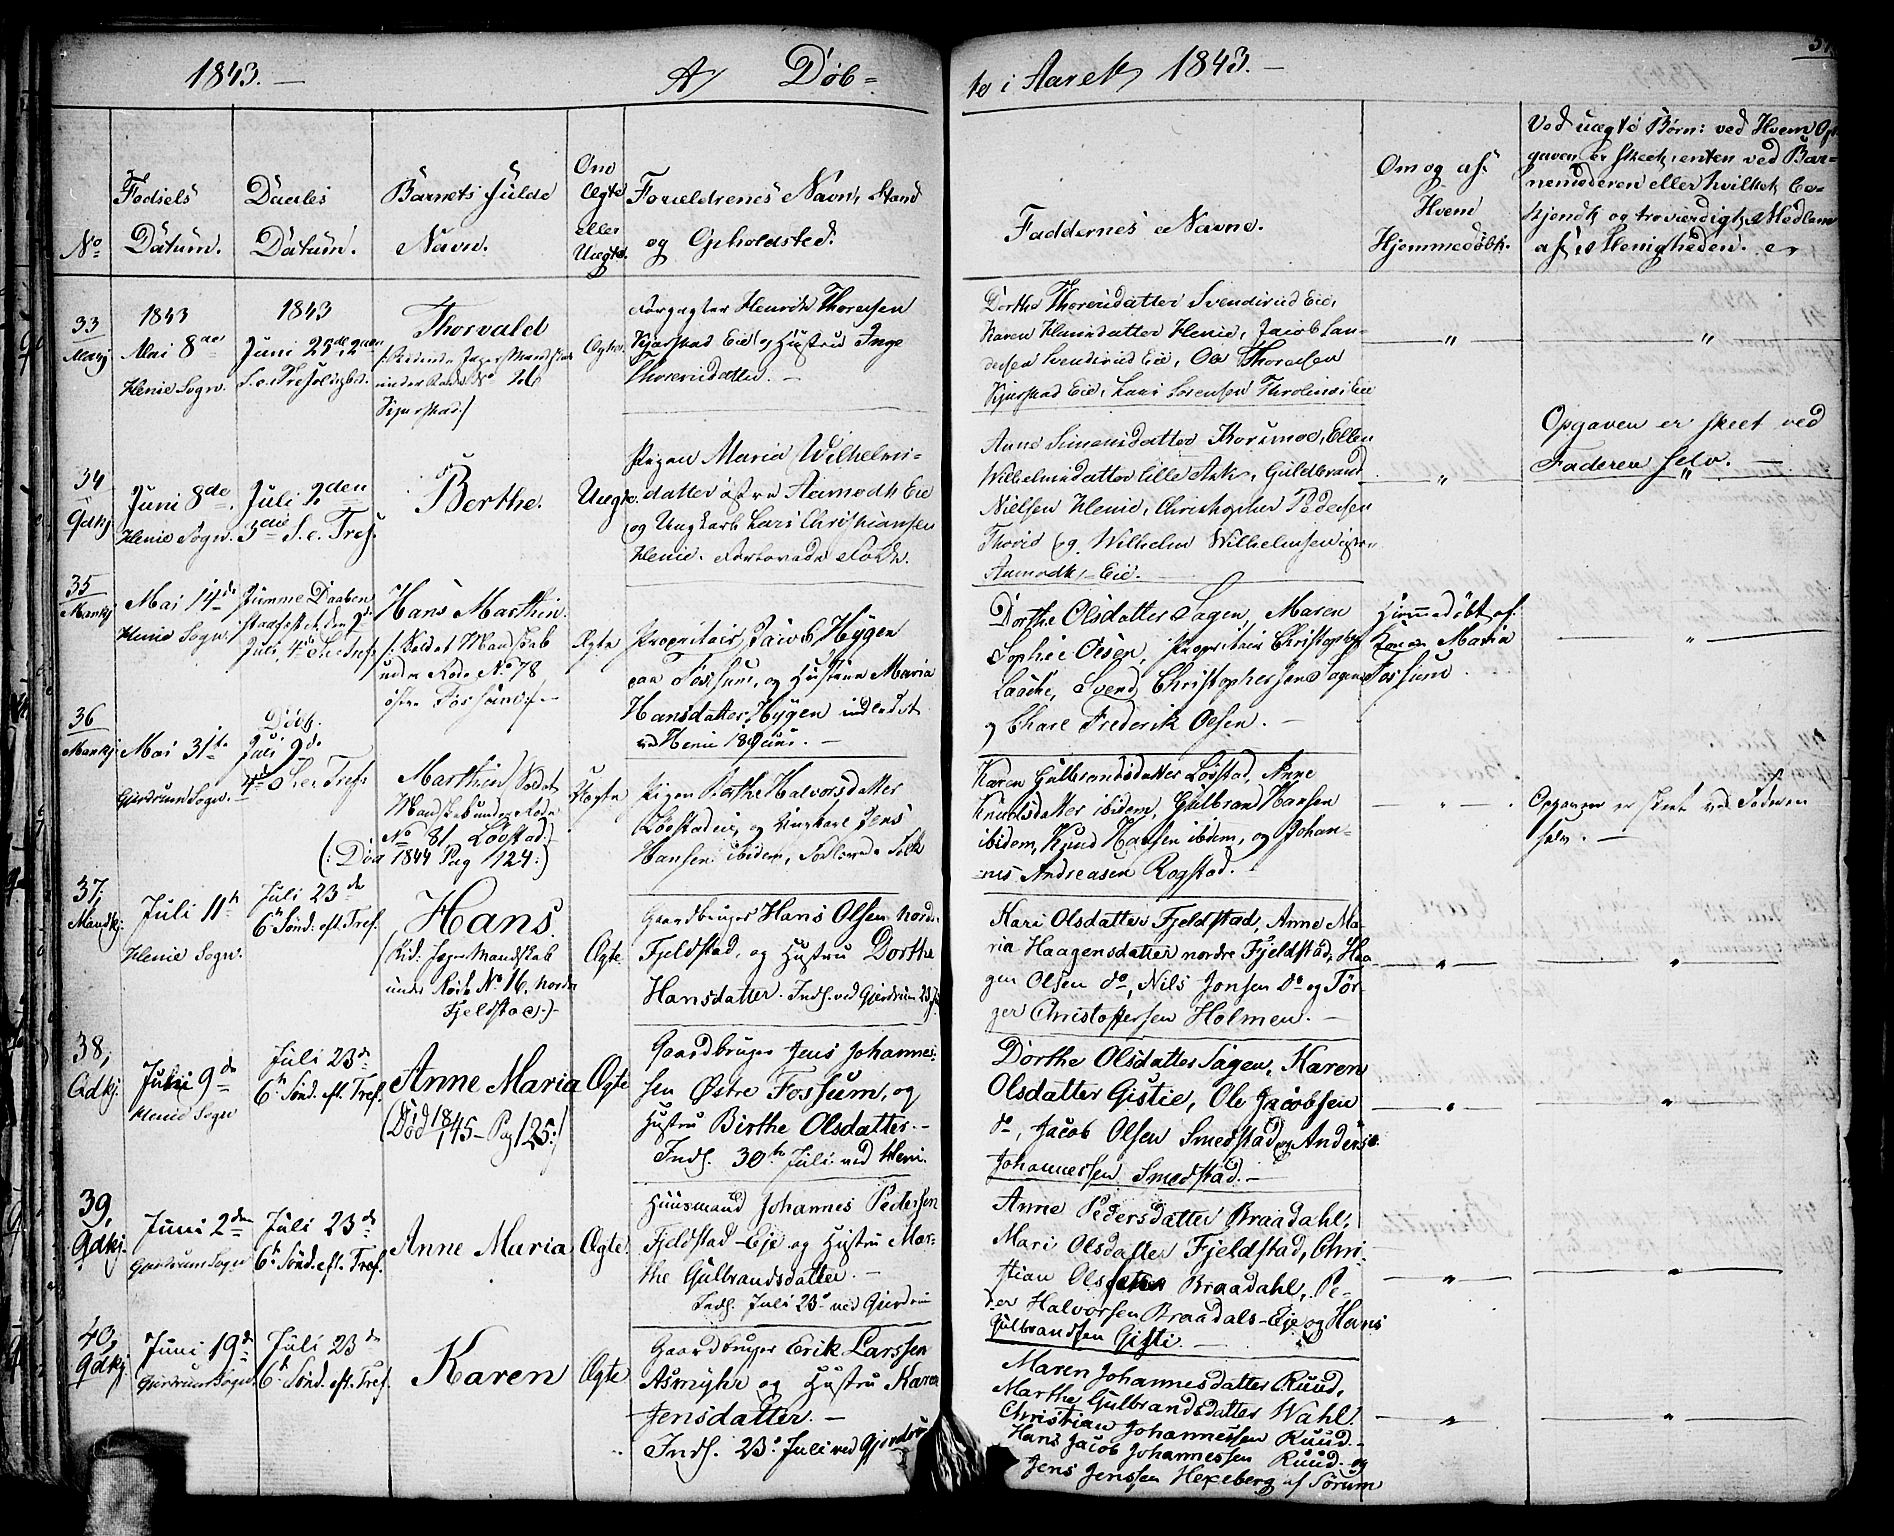 1843. — A/ Døb-
te i Aaret 1843. —
No
Fødsels Datum.
Daabs Datum.
Barnets fulde Navn.
Om Ægte eller Uægte.
Forældrenes Navn, Stand og Opholdsted.
Faddernes Navne.
Om og af Hvem Hjemmedøbt.
Ved uægte Børn: ved Hvem Op-
gaven er skeet, enten ved Bar-
nemoderen eller hvilket be-
kjendt og troværdigt Medlem
af Menigheden.
33
1843
Mai 8de
Henie Sogn.
1843
Juni 25de, 2den
S. e. Trefoldighed.
Thorvald
under Rode No 26
Kjærstad :/
Ægte.
Henrik Thoresen
Kjærstad Eie og Hustru Inge
Thorersdatter. —
Dorthe Thorersdatter Svendsrud Eie,
Karen Henriksdatter Henie, Jacob Lan-
dersen Svendsrud Eie, Ole Thoresen
Kjærstad Eie, Lars Sørensen Eie
"
"
34
Qdkj
Juni 8de.
Henie Sogn.
Juli 2den
3die S. e. Tref.
Berthe.
Uægte.
Pigen Maria Wilhelms-
datter østre Aamodt Eie
og Ungkarl Lars Christiansen
Henie. Forlovede Folk.
Anne Simensdatter Korsmoe, Ellen
Wilhelmsdatter lille Ask, Guldbrand
Nielsen Henie, Christopher Pedersen
og Wilhelm Wilhelmsen
Aamodt Eie. —
"
Opgaven er skeet ved
Faderen selv. —
35
Mankj
Mai 14de
Henie Sogn.
Hjemme Daaben
stadfæstet den 9de
Juli, 4de S. e. Tref.
Hans Marthin.
/: Soldat Mandskab
under Rode No. 78
østre Fossum :/ —
Ægte
Proprietair Jacob Hygen
paa Fossum, og Hustrue Maria
Hansdatter Hygen indledet
ved Henie 18 Juni. —
Dorthe Olsdatter Sagen, Maren
Sophie Olsen, Proprietair Christopher
Laache, Svend Christophersen Sagen
og Charl Frederik Olsen. —
Hjemmedøbt af
Konen Maria
Fossum.
"
36
Mankj
Mai 31te
Gjerdrum Sogn. —
Døbt.
Juli 9de
4de S. e. Tref.
Marthin / Soldat
Mandskab under Rode
No 81 Løvstad. /
(: Død 1844 Pag 124 :)
Uægte
Pigen Marthe Halvorsdatter
Løvstadeie, og Ungkarl Jens
Hansen ibidem, Forlovede Folk
Karen Gulbrandsdatter Løvstad, Anne
Knudsdatter ibidem, Gulbrand Hansen
ibidem, Knud Hansen ibidem, og Johan-
nes Andreasen Rogstad.
"
Opgaven er skeet ved Faderen
selv. —
37,
Mandkj.
Juli 11te
Henie Sogn.
Juli 23de
6te Sønd. eft. Tref.
Hans.
(Rid. Jæger Mandskab
under Rode No 16, nordre
Fjeldstad.)
Ægte.
Gaardbruger Hans Olsen nordre
Fjeldstad, og Hustru Dorthe
Hansdatter. Indl. ved Gjerdrum 23 Juli
Kari Olsdatter Fjeldstad, Anne Ma-
ria Haagensdatter nordre Fjeldstad, Haa-
gen Olsen do, Nils Jonsen do og Tør-
ger Christoffersen Holmen. —
"
"
38,
Qdkj.
Juli 9de
Henie Sogn
Juli 23de
6te Sønd. eft. Tref.
Anne Maria
(Død 18/1 45 — Pag 125 :/
Ægte
Gaardbruger Jens Johannes-
sen Østre Fossum, og
Hustru Birthe Olsdatter. —
Indl. 30te Juli ved Heni.
Dorthe Olsdatter Sagen, Karen
Olsdatter Gistie, Ole Jacobsen
do, Jacob Olsen Smedstad og Anders
Johannessen Smedstad. —
"
"
39,
Qdkj.
Juni 2den
Gjerdrum Sogn
Juli 23de
6te Sønd. eft. Tref.
Anne Maria
Ægte
Huusmand Johannes Pedersen
Fjeldstad-Eje og Hustru Mar-
the Gulbrandsdatter. —
Indl. Juli 23de ved Gjerdrum
Anne Pedersdatter Braadahl,
Mari Olsdatter Fjeldstad, Chri-
stian Olsen Braadahl, Pe-
der Halvorsen Braadals-Eje og Hans
Gulbrandsen Gisti. —
"
"
40,
Qdkj.
Juni 19de
Gjerdrum Sogn.
Juli 23de
6te Sønd. eft. Tref.
Karen
Ægte
Gaardbruger Erik Larssen
Asmyhr og Hustru Karen
Jensdatter. —
Indl. 23de Juli ved Gjerdrum
Maren Johannesdatter Ruud,
Marthe Gulbrandsdatter Wahl,
Christian Johannessen Ruud. —
Hans Jacob Johannessen Ruud. og
Jens Jenssen Hexeberg af Sørum
"
"